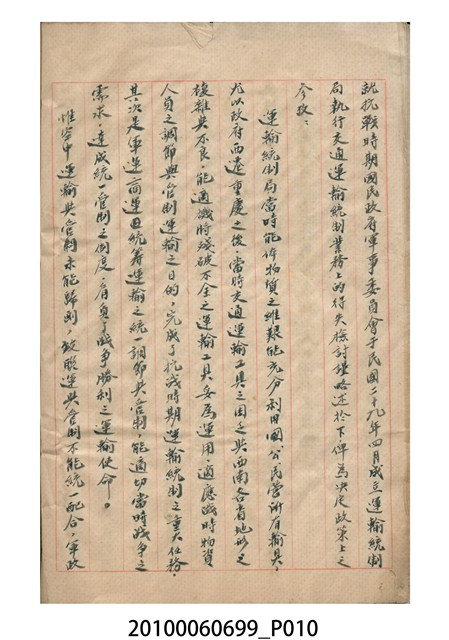 就抗戰時期國民政府軍事委員會于民國二十九年四月成立運輸統制
局執行交通運輸統制業務上的得失檢討謹略述於下俾為決定政策上之
參攷：
運輸統制局當時能作物質之維艱能充分利用國公民營所有輸具，
尤以政府西遷重慶之後，當時交通運輸工具之困乏與西南各省地形之
複雜與不良，能適戰時殘破不全之運輸工具妥為運用，適應戰時物資
人員之調節與管制運輸之目的，完成了抗戰時期運輸統制之重大任務，
其次是軍運商運田統籌運輸之統一調節與管制，能適切當時戰爭之
需求，達成統一管制之制度，肩負了戰爭勝利之運輸使命。
惟空中運輸與管制未能歸納，致聯運與管制不能統一配合，軍政
20100060699_P010